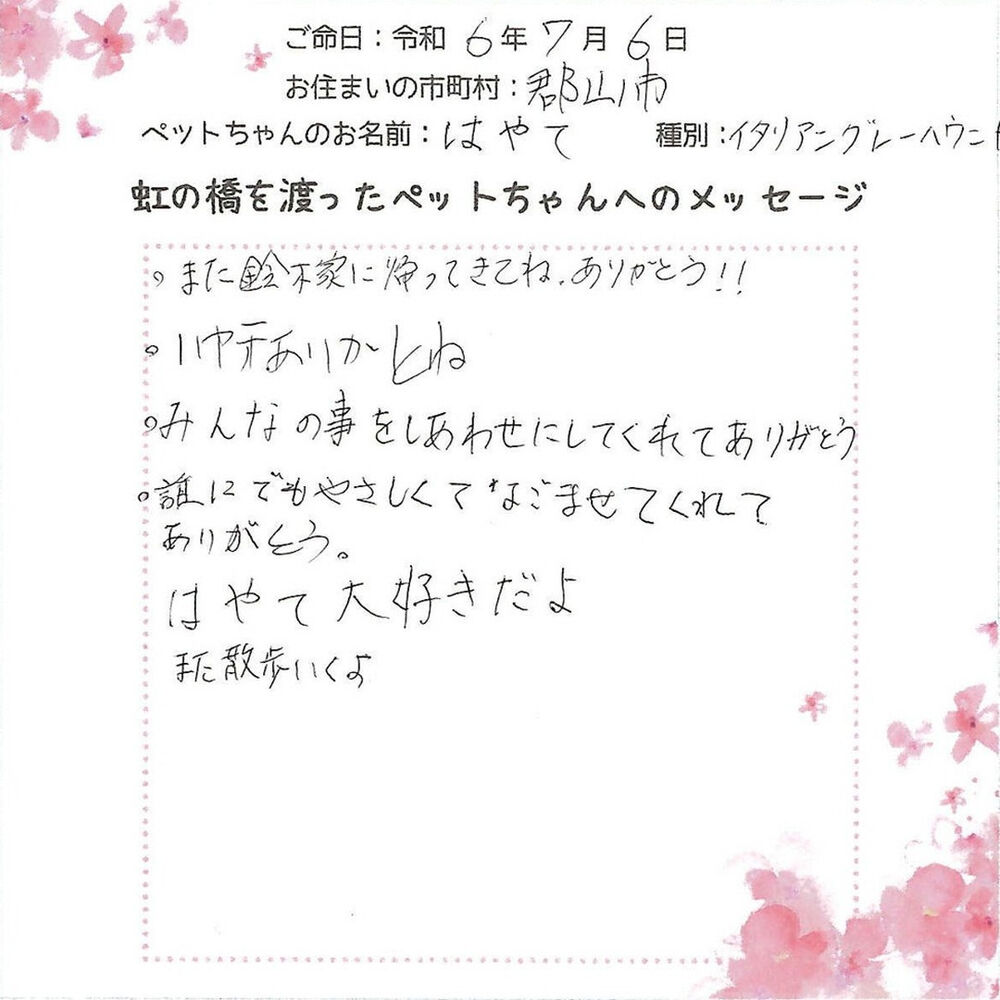 ご命日：令和 6年 7月 6日
お住まいの市町村：郡山市
ペットちゃんのお名前：はやて 種別：イタリアングレーハウンド
虹の橋を渡ったペットちゃんへのメッセージ
。また鈴木家に帰ってきてね。ありがとう!!
。ハヤテありがとね
。みんなの事をしあわせにしてくれてありがとう
。誰にでもやさしくてなごませてくれて
ありがとう。
はやて大好きだよ
また散歩いくよ